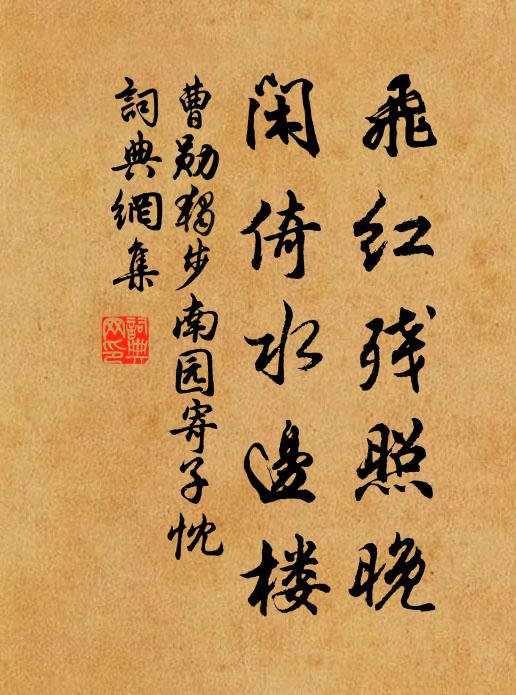 飛红残照晚
闲倚水邊楼
曹勋獨步南园寄子忱
詞典網集
詞典網印